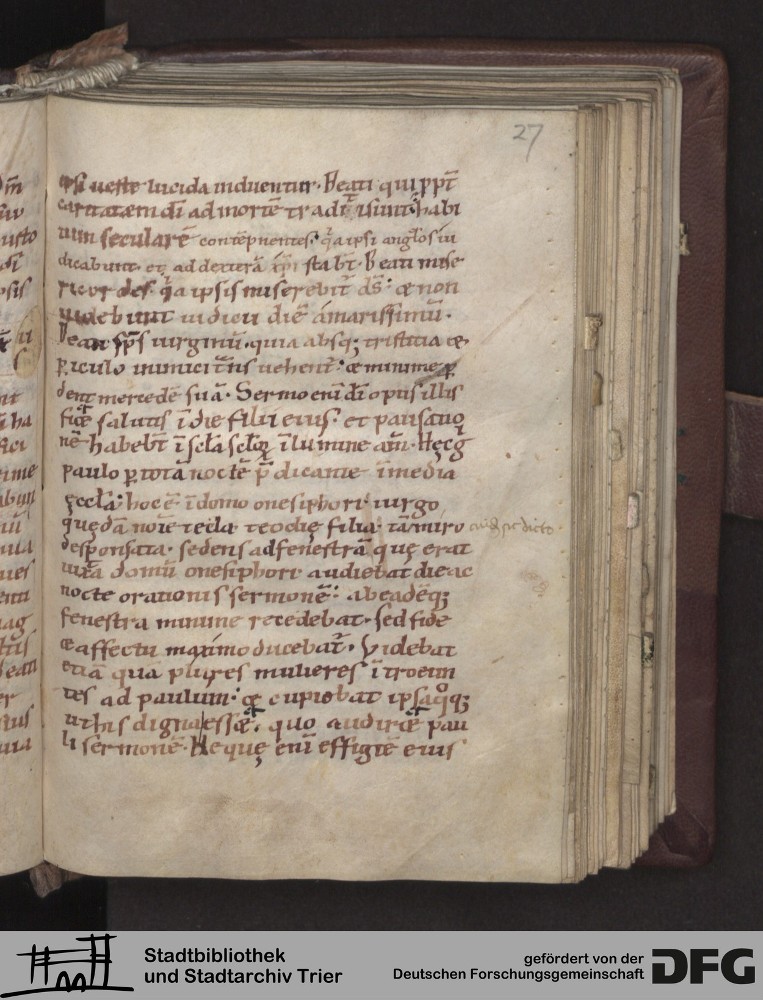 27
ipsi ueste lucida induentur. Beati qui ꝓpt̄
caritatem dī ad mortē tradit̄ sunt habi
tum secularē contēpnentes. q̄a ipsi anglōs iu
dicabunt. et ad dexterā xp̄i stab̄t. Beati mise
ricordes. q̄a ipsis miserebit̄ d̄s. & non
uidebunt iudicii diē amarissimū.
Beati sp̄s uirginū. quia absq; tristitia &
ꝑiculo inimicitiis uehent̄. & minime ꝑ
dent mercedē suā. Sermo enī dī opus illis
ficē salutis ī die filii eius. et pausatio
nē habeb̄t ī sc̄la sc̄loꝝ ī lumine am̄. Hęc g̅
paulo ꝑ totā noctē p̄dicante ī media
ęccla. hoc ē ī domo onesiphori uirgo
quędā noīe tecla teoclię filia. tamiro
desponsata. sedens ad fenestrā quę erat
iuxta domū onesiphori audiebat die ac
nocte orationis sermonē. ab eadēq;
fenestra minime recedebat. sed fide
& affectu maximo ducebat̄. Videbat
etiā quia plures mulieres ītroeun
tes ad paulum. & cupiebat ipsa qoq;
ut his digna esset. quo audiret pau
li sermonē. Neque enī effigiē eius
Stadtbibliothek
und Stadtarchiv Trier
gefördert von der
Deutschen Forschungsgemeinschaft
DFG